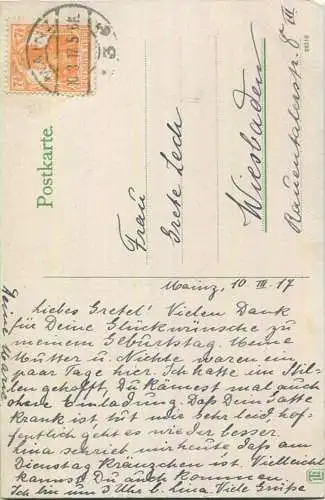 Postkarte.
MAINZ
10.3.17.5-6N.
* 3 c
7½
Frau
Grete Lech
Wiesbaden
Rauentalerstr. 8 III
Mainz, 10. III. 17
Liebes Gretel! Vielen Dank
für Deine Glückwünsche zu
meinem Geburtstag. Meine
Mutter u. Nichte waren ein
paar Tage hier. Ich hatte im Stil-
len gehofft, Du kämest mal auch
ohne Einladung. Daß Dein Gatte
krank ist, tut mir sehr leid, hof-
fentlich geht es wieder besser.
Lina schrieb mir heute, daß am
Dienstag Kränzchen ist. Vielleicht
kannst Du auch kommen.
Ich bin um 3 Uhr b. Lina. Viele Grüße
Deine